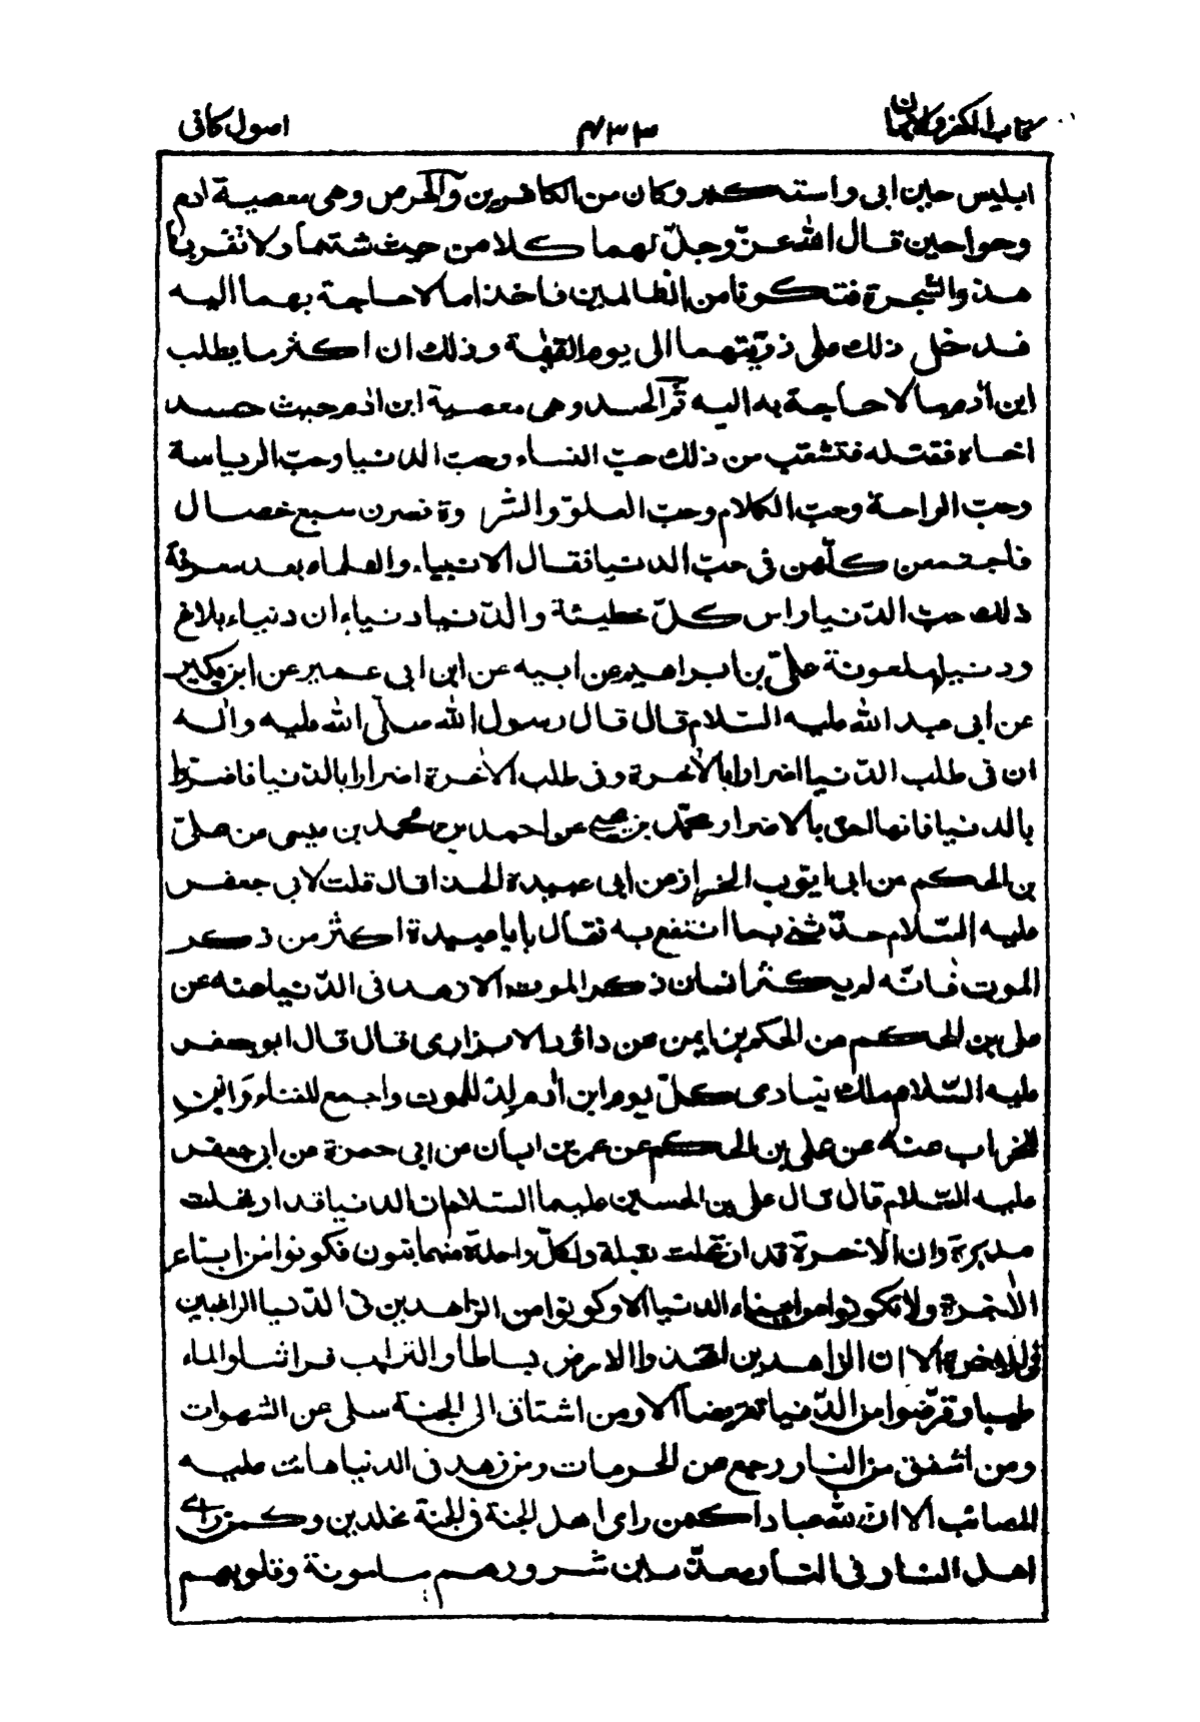 كتاب الكفر والايمان ٤٣٣ اصول كافى
ابليس حين ابى واستكبر وكان من الكافرين والحرص وهى معصية ادم
وحوا حين قال الله عزّ وجلّ لهما كلا من حيث شئتما ولا تقربا
هذه الشجرة فتكونا من الظالمين فاخذا ما لا حاجة بهما اليه
فدخل ذلك على ذرّيتهما الى يوم القيمة وذلك ان اكثر ما يطلب
ابن ادم ما لا حاجة به اليه ثم الحسد وهى معصية ابن ادم حيث حسد
اخاه فقتله فتشعّب من ذلك حبّ النساء وحبّ الدنيا وحبّ الرياسة
وحبّ الراحة وحبّ الكلام وحبّ العلوّ والثروة فصرن سبع خصال
فاجتمعن كلّهن فى حبّ الدنيا فقال الانبياء والعلماء بعد معرفة
ذلك حبّ الدّنيا راس كلّ خطيئة والدّنيا دنياءان دنياء بلاغ
ودنيا ملعونة علىّ بن ابراهيم عن ابيه عن ابن ابى عمير عن ابن بكير
عن ابى عبد الله عليه السّلام قال قال رسول الله صلّى الله عليه واله
ان فى طلب الدّنيا اضرارا بالاخرة وفى طلب الاخرة اضرارا بالدّنيا فاضرّوا
بالدنيا فانها احق بالاضرار محمّد بن يحيى عن احمد بن محمد بن عيسى عن علىّ
بن الحكم عن ابى ايّوب الخزاز عن ابى عبيدة الحذا قال قلت لابى جعفر
عليه السّلام حدّثنى بما انتفع به فقال يا با عبيدة اكثر من ذكر
الموت فانّه لم يكثر انسان ذكر الموت الا زهد فى الدّنيا عنه عن
على بن الحكم عن الحكم بن ايمن عن داؤد الابزارى قال قال ابو جعفر
عليه السّلام ملك ينادى كلّ يوم ابن ادم لد للموت واجمع للفناء وابن
للخراب عنه عن على بن الحكم عن عمر بن ابان عن ابى حمزة عن ابى جعفر
عليه السّلام قال قال على بن الحسين عليهما السّلام ان الدنيا قد ارتحلت
مدبرة وان الاخرة قد ارتحلت مقبلة ولكلّ واحدة منهما بنون فكونوا من ابناء
الاخرة ولا تكونوا من ابناء الدنيا الا وكونوا من الزاهدين فى الدّنيا الراغبين
فى الاخرة الا ان الزاهدين اتخذوا الارض بساطا والتراب فراشا والماء
طيبا وقرّضوا من الدّنيا تقريضا الا ومن اشتاق الى الجنة سلى عن الشهوات
ومن اشفق من النار رجع عن الحرمات ومن زهد فى الدنيا هانت عليه
المصائب الا ان لله عبادا كمن راى اهل الجنة فى الجنة مخلدين وكمن راى
اهل النار فى النار معذّبين شرورهم مامونة وقلوبهم